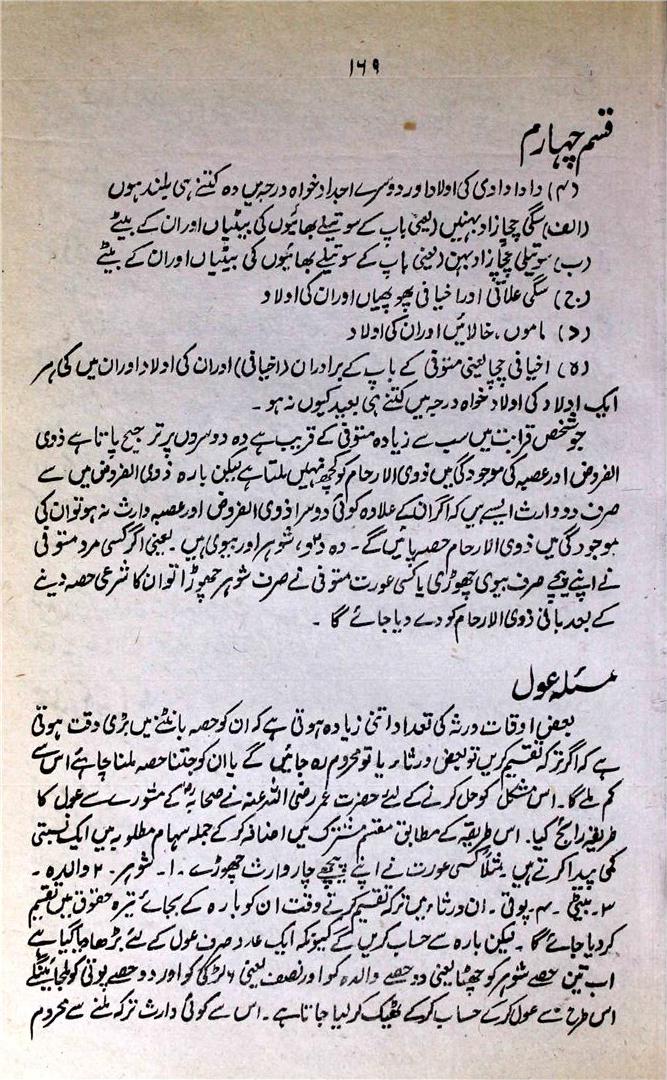 ۱۶۹
قسم چہارم
(۴) دادا دادی کی اولاد اور دوسرے اجداد خواہ درجہ میں وہ کتنے ہی بلند ہوں
(الف) سگی چچا زاد بہنیں (یعنی باپ کے سوتیلے بھائیوں کی بیٹیاں اور ان کے بیٹے
(ب) سوتیلی چچا زاد بہن (یعنی باپ کے سوتیلے بھائیوں کی بیٹیاں اور ان کے بیٹے
(ج) سگی علاتی اور اخیافی پھوپھیاں اور ان کی اولاد
(د) ماموں، خالائیں اور ان کی اولاد
(ہ) اخیافی چچا یعنی متوفی کے باپ کے برادران (اخیافی) اور ان کی اولاد اور ان میں کی ہر
ایک اولاد کی اولاد خواہ درجہ میں کتنے ہی بعید کیوں نہ ہو۔
جو شخص قرابت میں سب سے زیادہ متوفی کے قریب ہے وہ دوسروں پر ترجیح پاتا ہے ذوی
الفروض اور عصبہ کی موجودگی میں ذوی الارحام کو کچھ نہیں ملتا ہے لیکن بارہ ذوی الفروض میں سے
صرف دو وارث ایسے ہیں کہ اگر ان کے علاوہ کوئی دوسرا ذوی الفروض اور عصبہ وارث نہ ہو تو ان کی
موجودگی میں ذوی الارحام حصہ پائیں گے۔ وہ دو، شوہر اور بیوی ہیں۔ یعنی اگر کسی مرد متوفی
نے اپنے پیچھے صرف بیوی چھوڑی یا کسی عورت متوفی نے صرف شوہر چھوڑا تو ان کا شرعی حصہ دینے
کے بعد باقی ذوی الارحام کو دے دیا جائے گا۔
مسئلہ عول
بعض اوقات ورثہ کی تعداد اتنی زیادہ ہوتی ہے کہ ان کو حصہ بانٹنے میں بڑی دقت ہوتی
ہے کہ اگر ترکہ تقسیم کریں تو بعض ورثاء یا تو محروم رہ جائیں گے یا ان کو جتنا حصہ ملنا چاہئے اس سے
کم ملے گا۔ اس مشکل کو حل کرنے کے لئے حضرت عمر رضی اللہ عنہ نے صحابہ کے مشورے سے عول کا
طریقہ رائج کیا۔ اس طریقہ کے مطابق مقسم مشترک میں اضافہ کر کے جملہ سہام مطلوبہ میں ایک نسبتی
کمی پیدا کرتے ہیں۔ مثلاً کسی عورت نے اپنے پیچھے چار وارث چھوڑے۔ ۱۔ شوہر۔ ۲ والدہ۔
۳۔ بیٹی۔ ۴۔ پوتی۔ ان ورثاء میں ترکہ تقسیم کرتے وقت ان کو بارہ کے بجائے تیرہ حقوق میں تقسیم
کر دیا جائے گا۔ لیکن بارہ سے حساب کریں گے کیونکہ ایک عدد صرف عول کے لئے بڑھا جا گیا ہے
اب تین حصے شوہر کو چھٹا یعنی دو حصے والدہ کو اور نصف یعنی ۶ لڑکی کو اور دو حصے پوتی کو مل جائینگے
اس طرح سے عول کر کے حساب کر کے ٹھیک کر لیا جاتا ہے۔ اس سے کوئی وارث ترکہ ملنے سے محروم